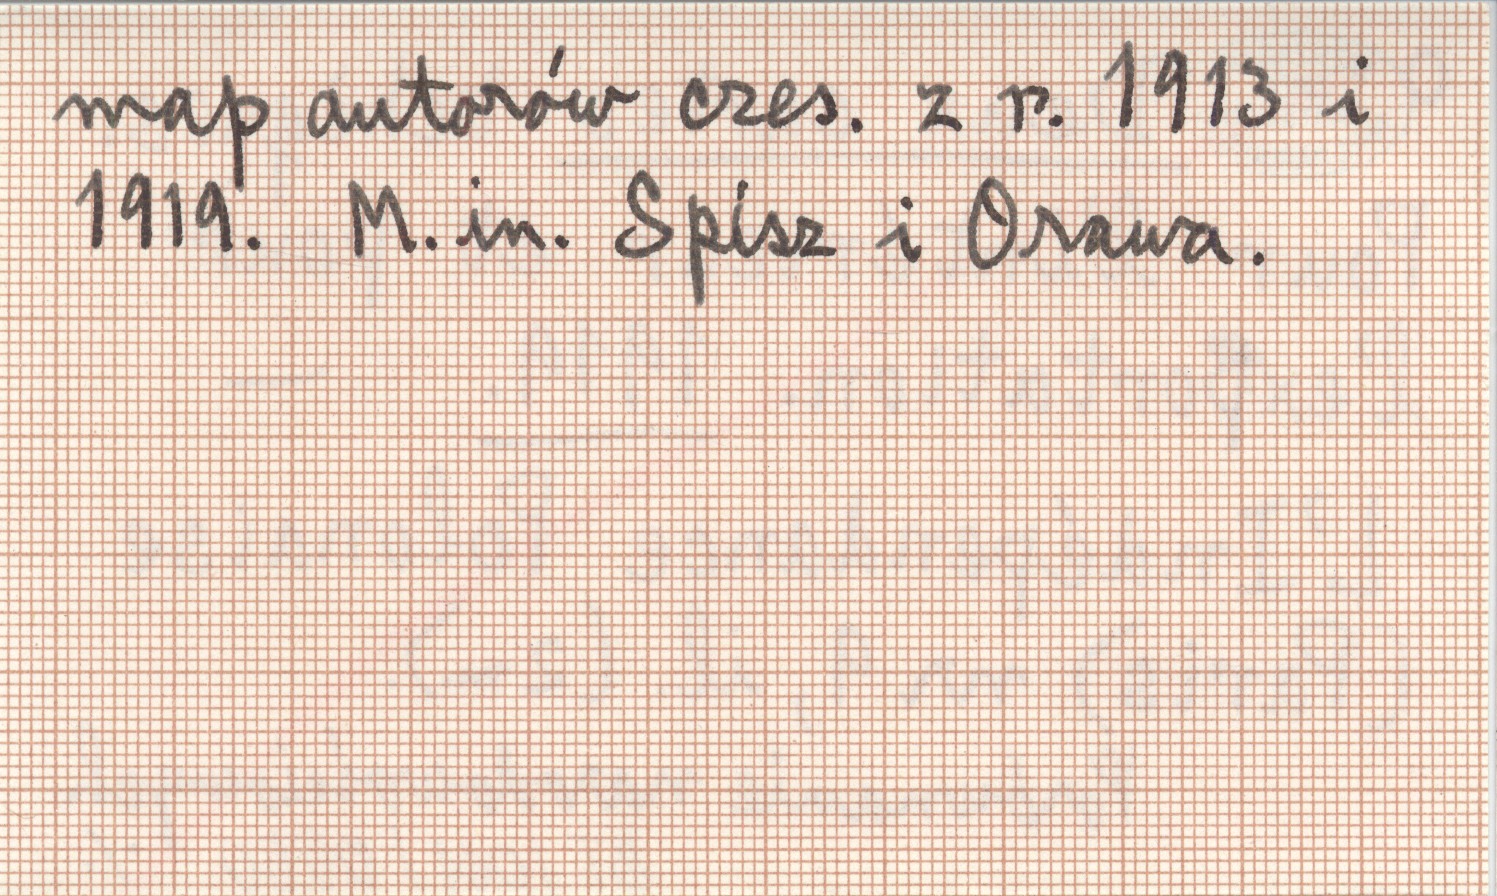 map autorów czes. z r. 1913 i
1919. M. in. Spisz i Orawa.